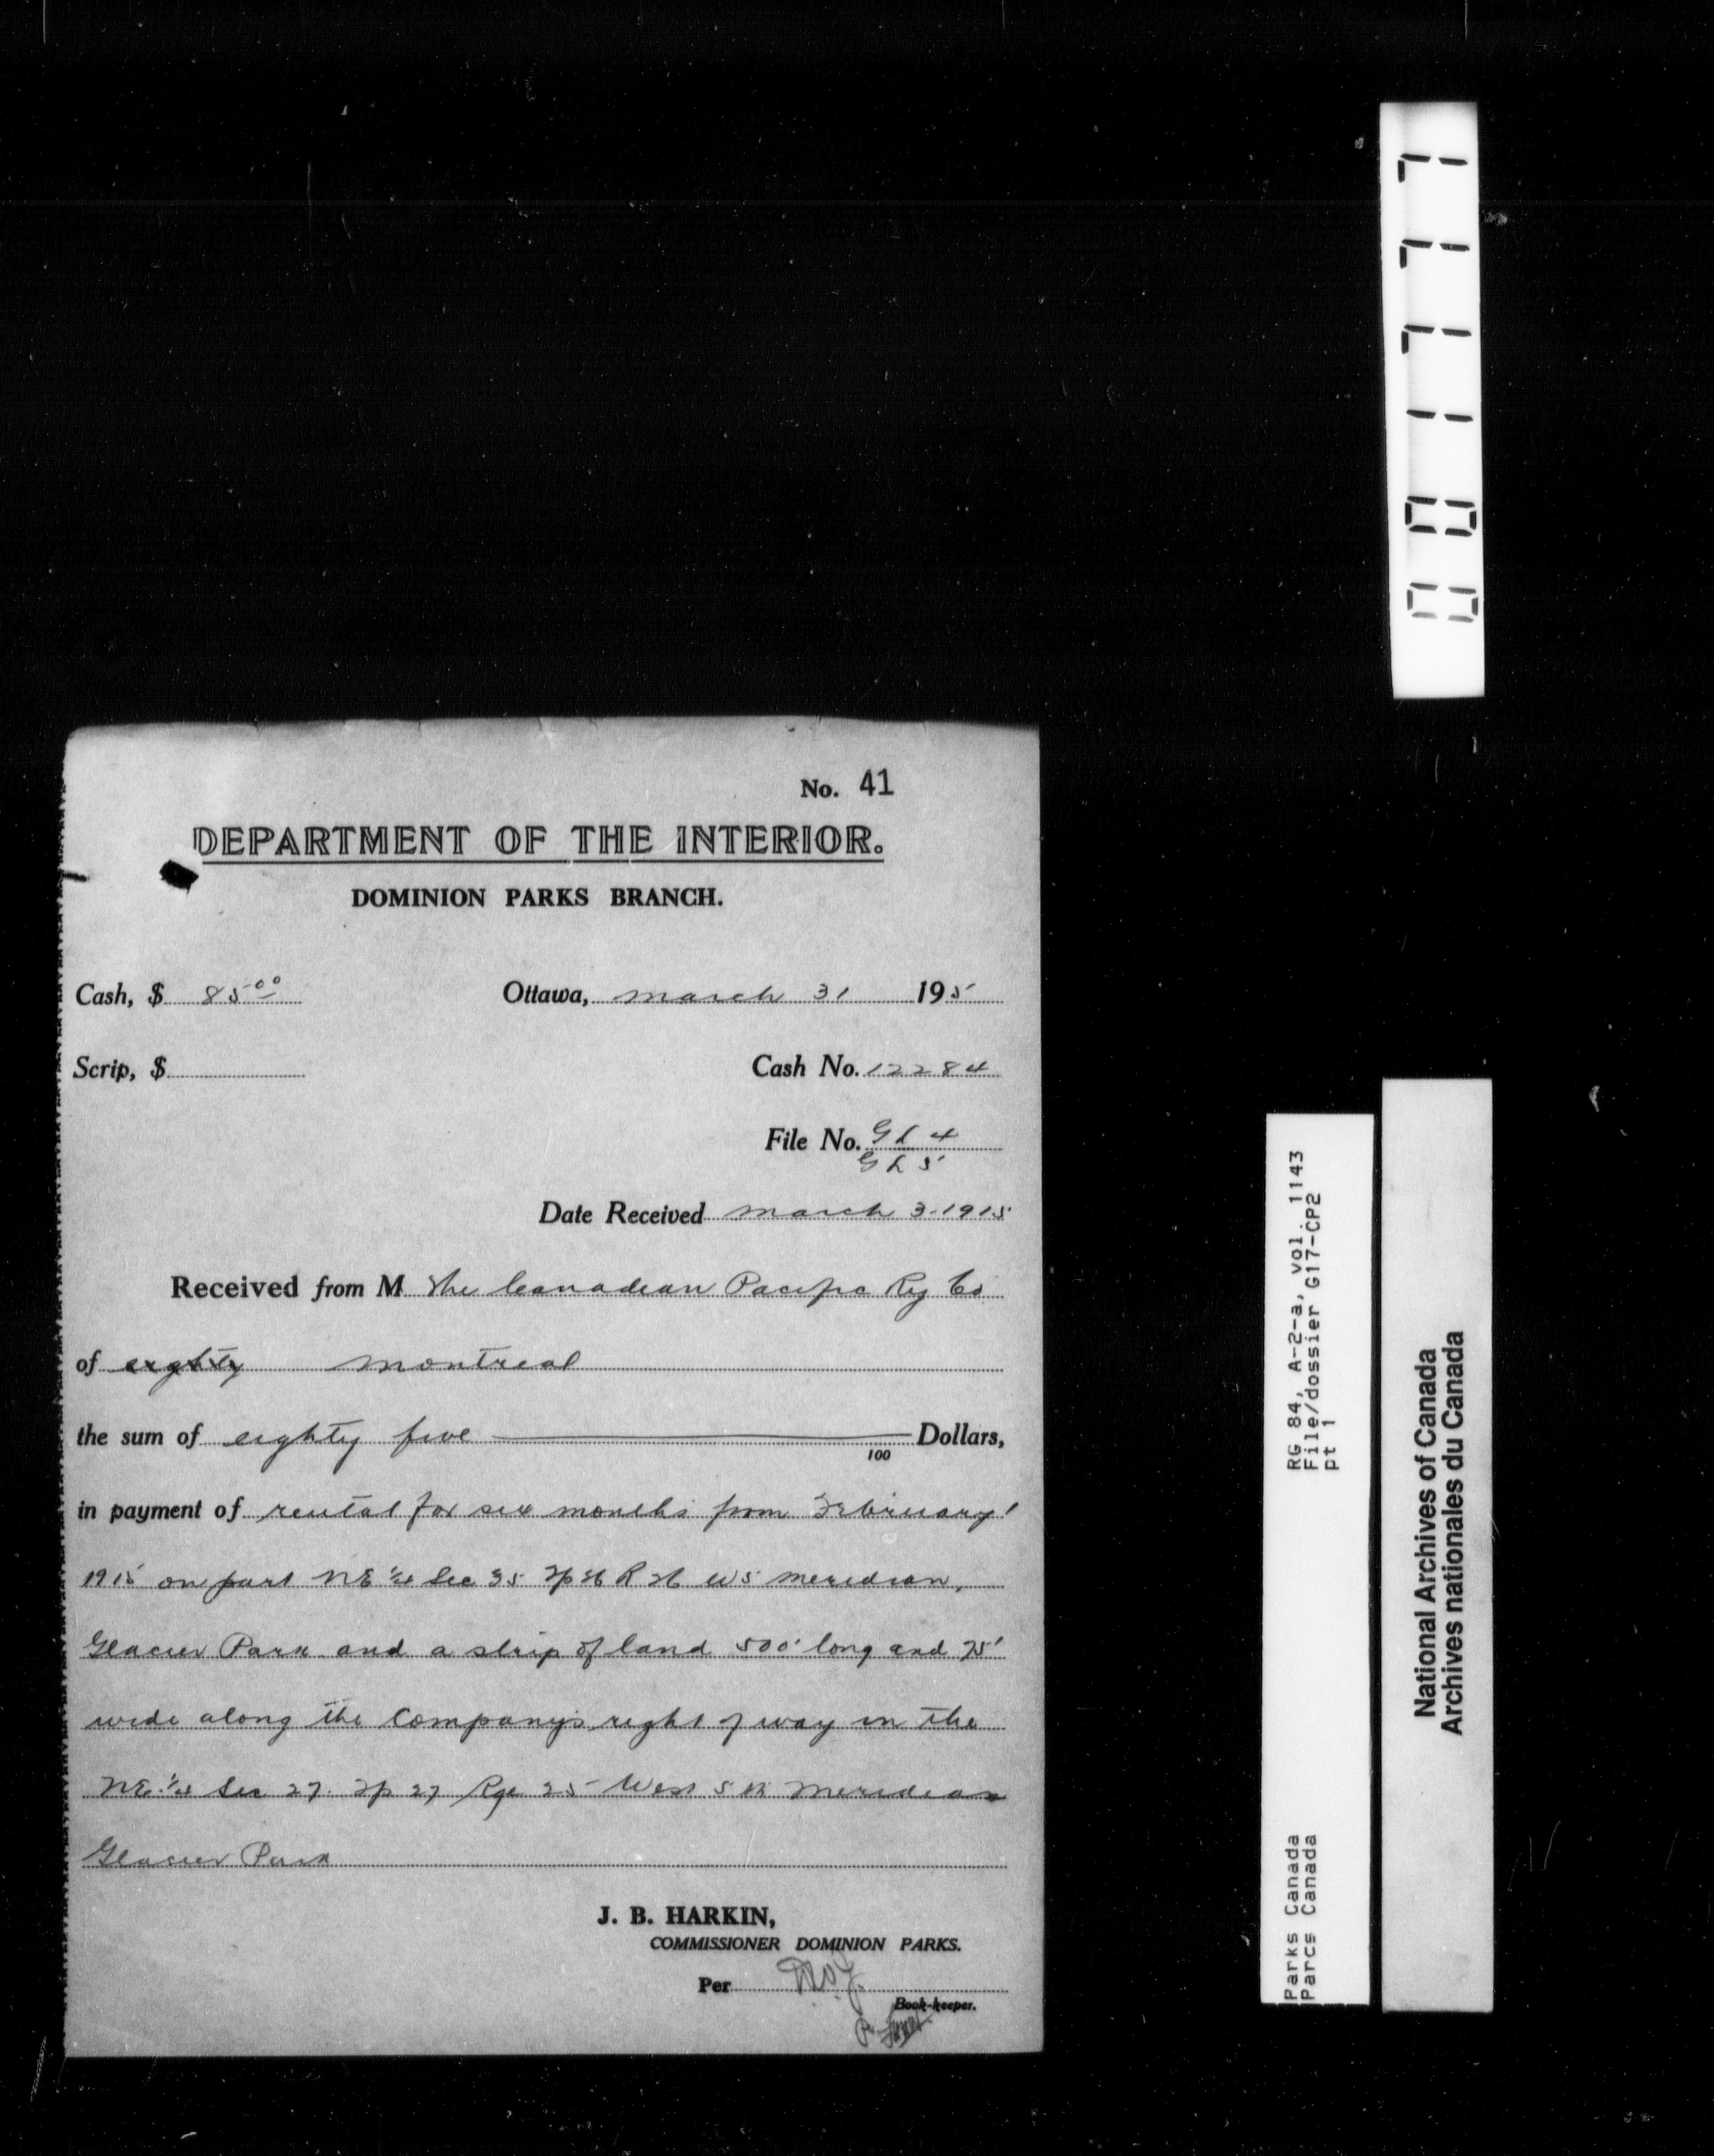 No. 41
DEPARTMENT OF THE INTERIOR.
DOMINION PARKS BRANCH.
Cash, $ 85.00 Ottawa, March 31 195
Scrip, $
Cash No. 12284
File No. GL 4
GL 5
Date Received March 3-1915
Received from M The Canadian Pacific Ry Co
of eighty Montreal
the sum of eighty five Dollars,
100
in payment of rental for six months from February 1
1915 on part NE 1/4 Sec 35 Tp 26 R 26 W5 Meridian,
Glacier Park and a strip of land 500' long and 75'
wide along the Company's right of way in the
NE 1/4 Sec 27 Tp 27 Rge 25 West 5th Meridian
Glacier Park
J. B. HARKIN,
COMMISSIONER DOMINION PARKS.
Per
Book-keeper.
001777
RG 84, A-2-a, vol. 1143
File/dossier G17-CP2
pt 1
Parks Canada
Parcs Canada
National Archives of Canada
Archives nationales du Canada